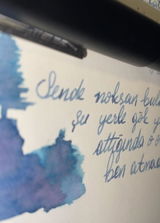 Sende noksan bul
şu yerle gök y
attığında o o
ben atma